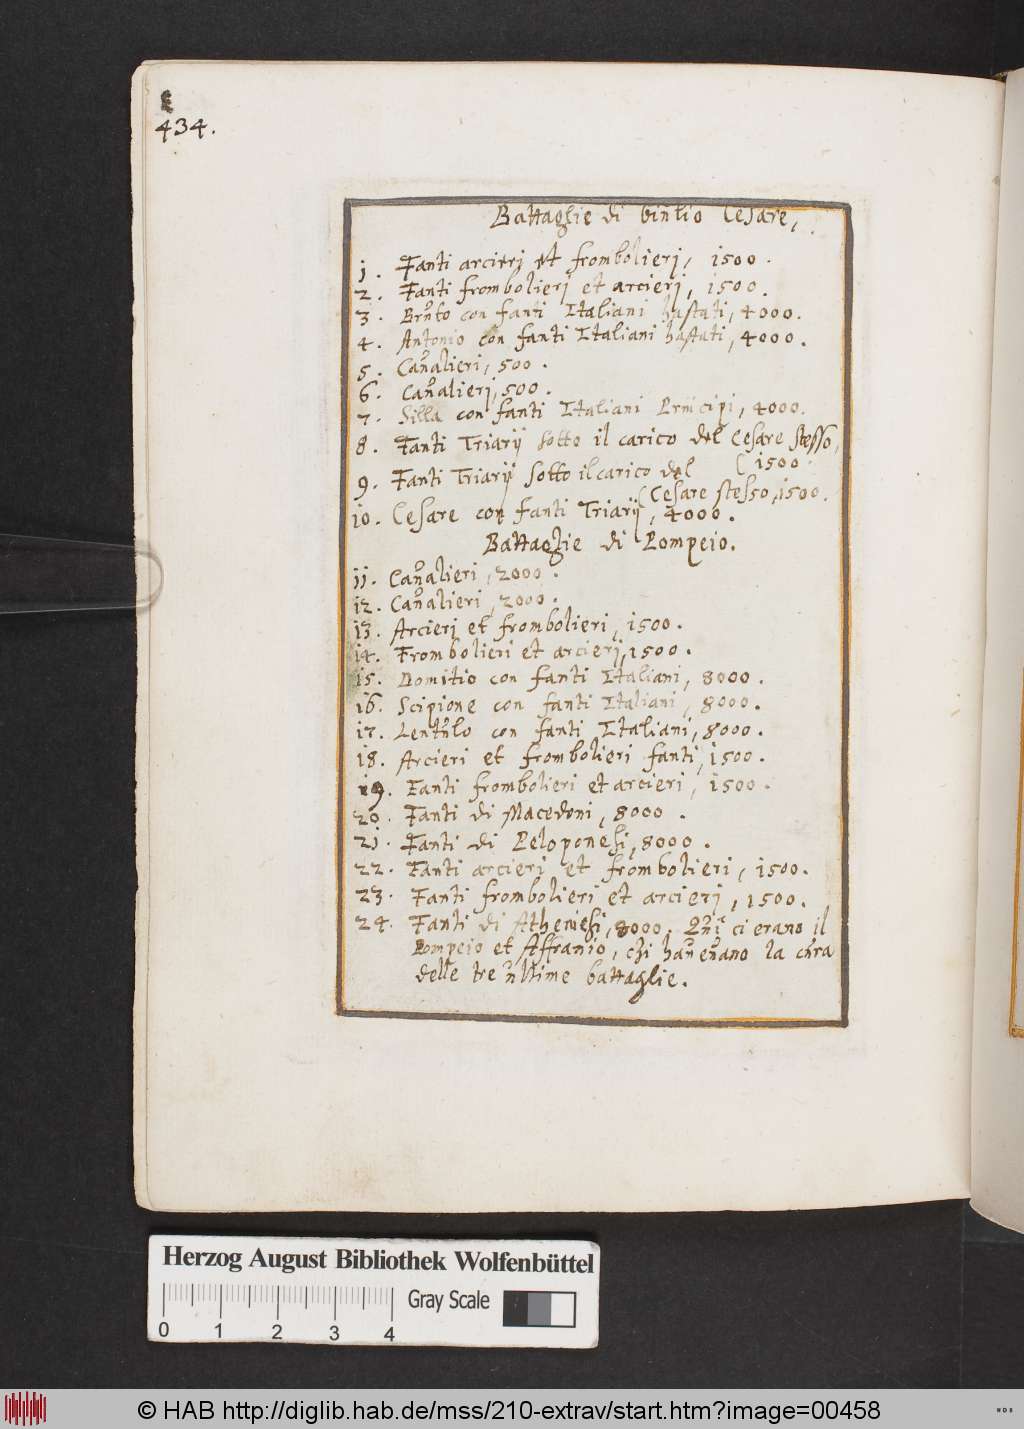 434.
Battaglie di Giulio Cesare,
1. Fanti arcieri et frombolieri, 1500.
2. Fanti frombolieri et arcieri, 1500.
3. Bruto con fanti Italiani hastati, 4000.
4. Antonio con fanti Italiani hastati, 4000.
5. Caualieri, 500.
6. Caualieri, 500.
7. Silla con fanti Italiani Principi, 4000.
8. Fanti Triarij sotto il carico del Cesare stesso,
(1500.
9. Fanti Triarij sotto il carico del
(Cesare stesso, 1500.
10. Cesare con fanti Triarij, 4000.
Battaglie di Pompeio.
11. Caualieri, 2000.
12. Caualieri, 2000.
13. Arcieri et frombolieri, 1500.
14. Frombolieri et arcieri, 1500.
15. Domitio con fanti Italiani, 8000.
16. Scipione con fanti Italiani, 8000.
17. Lentulo con fanti Italiani, 8000.
18. Arcieri et frombolieri fanti, 1500.
19. Fanti frombolieri et arcieri, 1500.
20. Fanti di Macedoni, 8000.
21. Fanti di Peloponesi, 8000.
22. Fanti arcieri et frombolieri, 1500.
23. Fanti frombolieri et arcieri, 1500.
24. Fanti di Atheniesi, 8000. Qui ci erano il
Pompeio et Affranio, chi haueuano la cura
delle tre ultime battaglie.
Herzog August Bibliothek Wolfenbüttel
Gray Scale
0 1 2 3 4
© HAB http://diglib.hab.de/mss/210-extrav/start.htm?image=00458